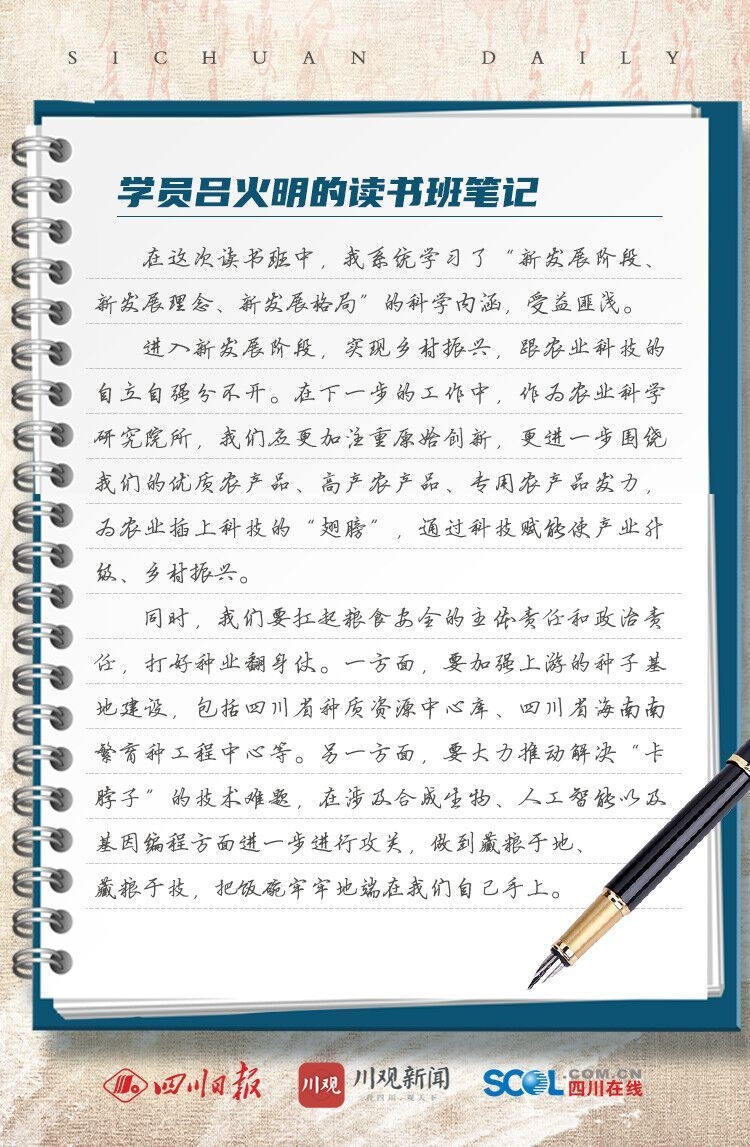 SICHUAN DAILY
学员吕火明的读书班笔记
在这次读书班中，我系统学习了“新发展阶段、
新发展理念、新发展格局”的科学内涵，受益匪浅。
进入新发展阶段，实现乡村振兴，跟农业科技的
自立自强分不开。在下一步的工作中，作为农业科学
研究院所，我们应更加注重原始创新，更进一步围绕
我们的优质农产品、高产农产品、专用农产品发力，
为农业插上科技的“翅膀”，通过科技赋能使产业升
级、乡村振兴。
同时，我们要扛起粮食安全的主体责任和政治责
任，打好种业翻身仗。一方面，要加强上游的种子基
地建设，包括四川省种质资源中心库、四川省海南南
繁育种工程中心等。另一方面，要大力推动解决“卡
脖子”的技术难题，在涉及合成生物、人工智能以及
基因编程方面进一步进行攻关，做到藏粮于地、
藏粮于技，把饭碗牢牢地端在我们自己手上。
四川日报
川观
川观新闻
SCOL .COM.CN
四川在线